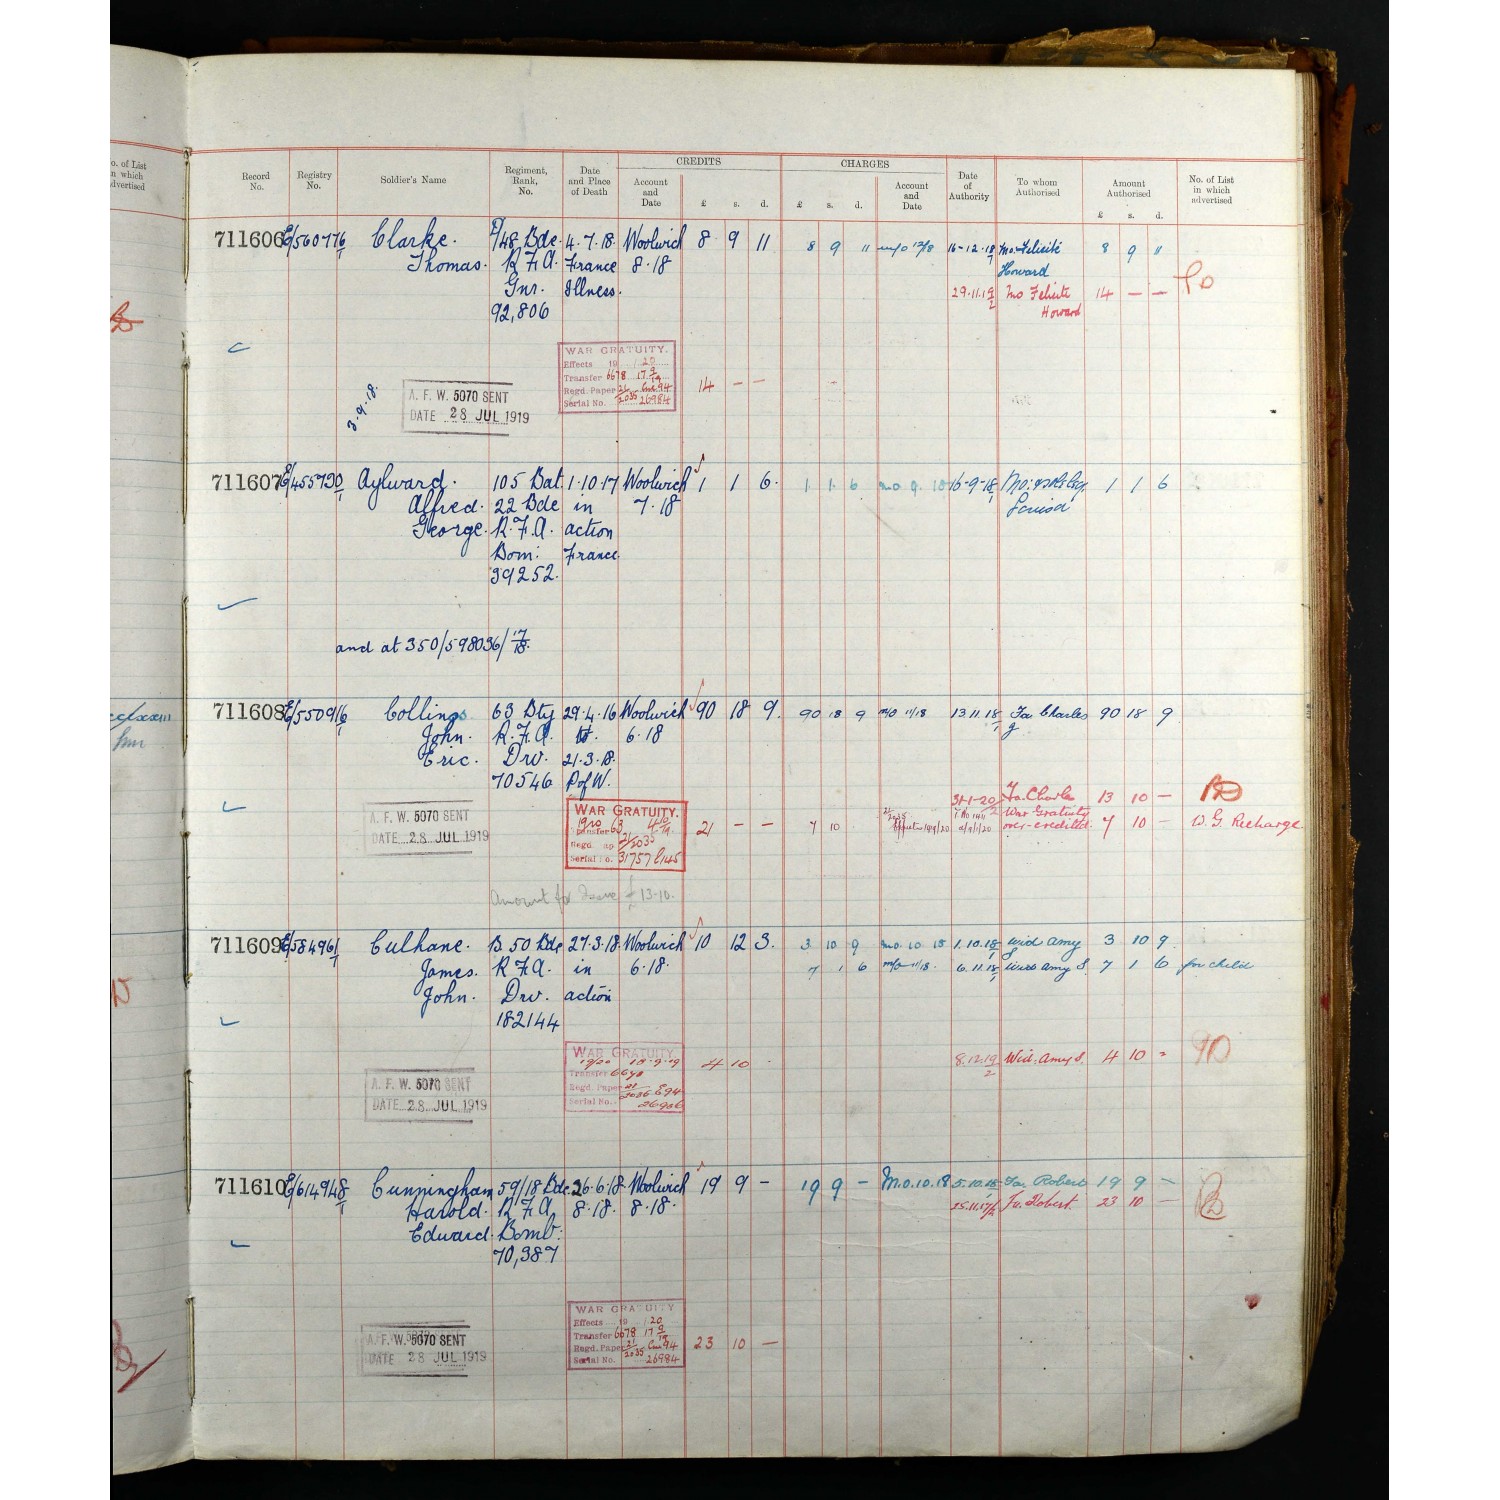 o. of List
n which
dvertised
Record
No.
Registry
No.
Soldier's Name
Regiment,
Rank,
No.
Date
and Place
of Death
CREDITS
Account
and
Date
£ s. d.
CHARGES
£ s. d.
Account
and
Date
Date
of
Authority
To whom
Authorised
Amount
Authorised
£ s. d.
No. of List
in which
advertised
711606 E/560776/1 Clarke. 48 Bde. 4.7.18. Woolwich 8 9 11 8 9 11 m/o 12/8 16-12-18/1 Mo: Felicité 8 9 11
Thomas. R.F.A. France 8.18 Howard
Gnr. Illness. 29.11.19/2 Mo Felicite 14 — —
92,806 Howard
WAR GRATUITY.
Effects 19 20
Transfer 6678 17 9/19
Regd. Paper 21/2035 E94
Serial No. 26984
14 — —
3.9.18.
A. F. W. 5070 SENT
DATE 28 JUL 1919
711607 E/455730/1 Aylward. 105 Bat. 1.10.17 Woolwich 1 1 6. 1 1 6 mo 9. 18 16-9-18/1 Mo: & 1 1 6
Alfred. 22 Bde in 7.18 Louisa
George. R.F.A. action
Bom: France.
39252.
and at 350/598036/17/18.
711608 E/550916/1 Collings 63 Bty 29.4.16 Woolwich 90 18 9. 90 18 9 m/o 11/18 13.11.18/1 Fa Charles 90 18 9
John. R.F.A. to. 6.18 g
Eric. Drv. 21.3.18.
70546 P of W.
31-1-20 Fa. Charles 13 10 —
War Gratuity
over-credited. 7 10 — W. G. Recharge
A. F. W. 5070 SENT
DATE 28 JUL 1919
WAR GRATUITY.
19/20
Transfer 63
Regd. 21/2035
Serial No. 31757 E145
21 — — 7 10
Amount for Issue £13-10.
711609 E/58496/1 Culhane. B. 50 Bde 27.3.18. Woolwich 10 12 3. 3 10 9 mo. 10 18 1.10.18/1 Wid Amy 3 10 9
S
James. R.F.A. in 6.18. 7 1 6 m/o 11/18. 6.11.18/1 Wid Amy S. 7 1 6 for child
John. Drv. action
182144
WAR GRATUITY.
19/20 18.9.19
Transfer 6690
Regd. Paper 21/2035 E94
Serial No. 26986
4 10 - 8.12.19/2 Wid. Amy S. 4 10 -
A. F. W. 5070 SENT
DATE 28 JUL 1919
711610 E/614948/1 Cunningham 59/18 Bde. 26.6.18 Woolwich 19 9 — 19 9 — M.0.10.18 5.10.18 Fa: Robert 19 9 —
Harold. R.F.A. 8.18. 8.18. Fa. Robert. 23 10 —
Edward. Bomb:
70,387
WAR GRATUITY
Effects 19 20
Transfer 6678 17 9/19
Regd. Paper 21/2035 E94
Serial No. 26984
23 10 —
A. F. W. 5070 SENT
DATE 28 JUL 1919